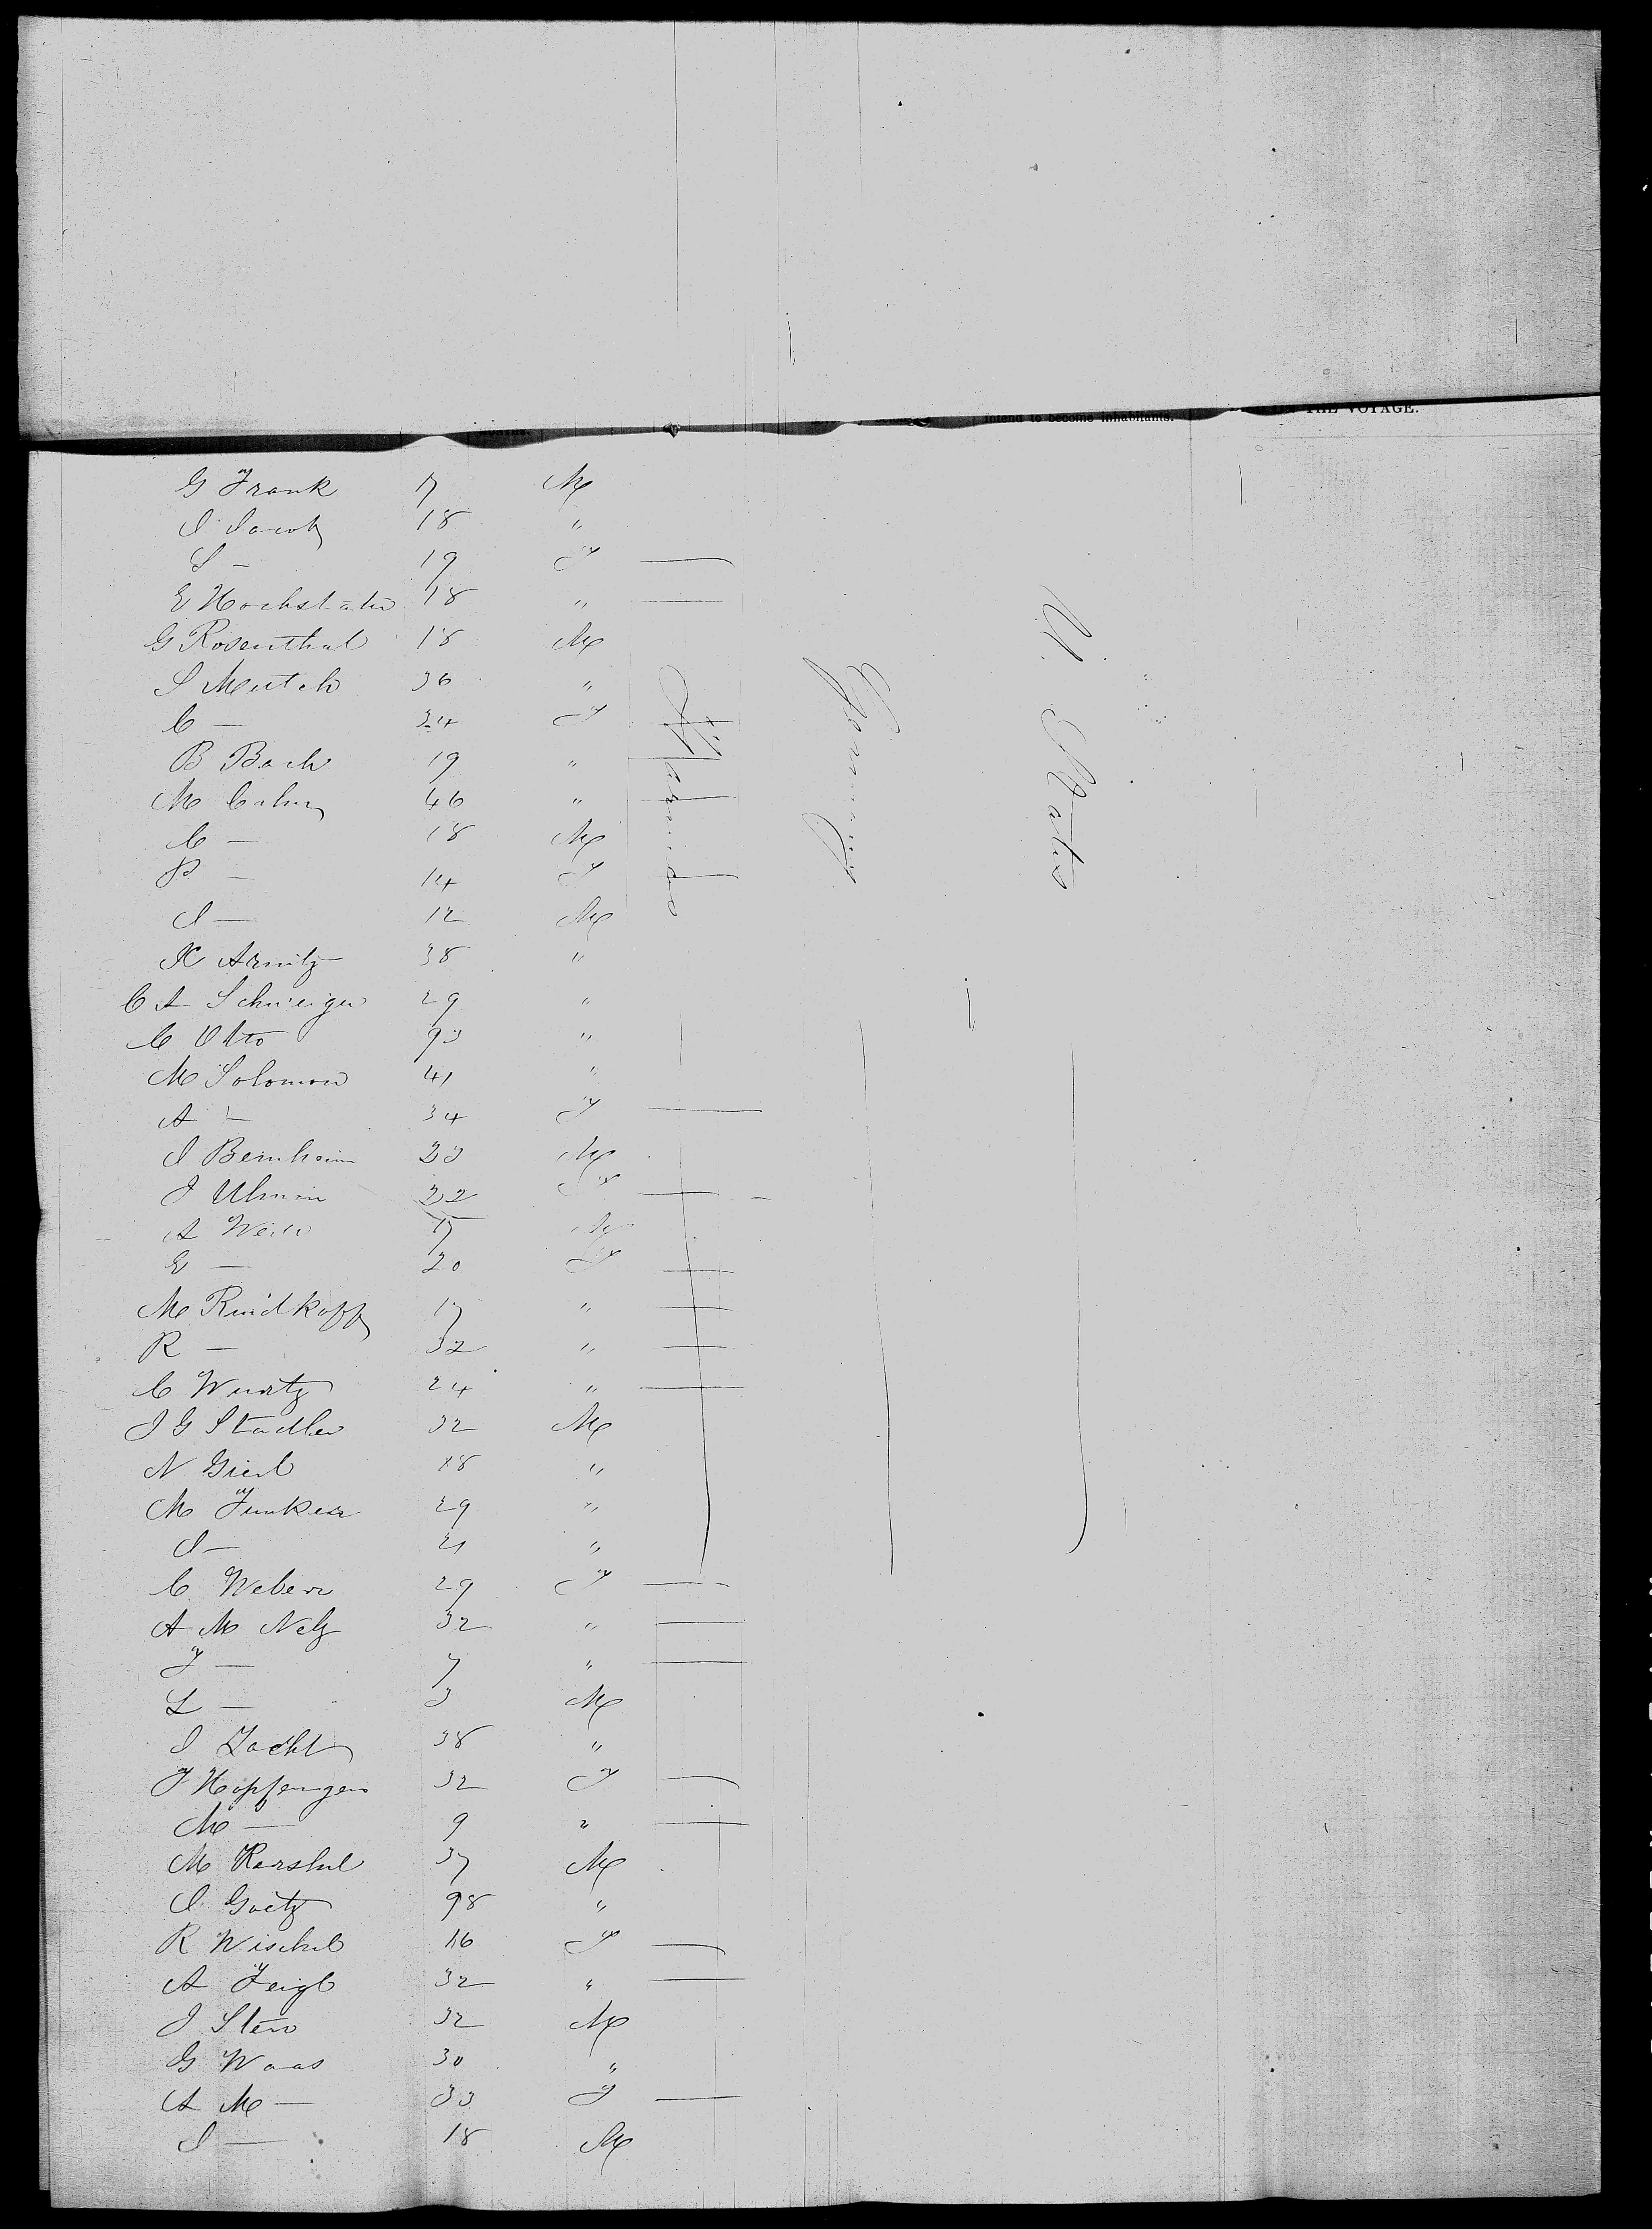 intend to become inhabitants. THE VOYAGE.
G Frank 17 M
I Jacob 18 "
S — 19 F —
E Hochstater 18 " —
G Rosenthal 18 M
S 36 "
C — 34 F —
B Bach 19 " —
M Cahn 46 " —
C — 18 M
P — 14 F —
I — 12 M
K Arnitz 38 "
C A Schweiger 29 "
C Otto "
M Solomon 41 "
A — 34 F —
I Bernheim 23 M
J Ulman 22 F —
A Weill 17 M
E — 20 F —
M Rindkopf 17 " —
R — 32 " —
C Wurtz 24 " —
J G Stadler 32 M
N Gierl 18 "
M Junker 29 "
I — 21 "
C Weber 29 F —
A M Netz 32 " —
F — 7 " —
L — 3 M
I 38 "
F Hopfengen 32 F —
M — 9 " —
M 37 M
I Goetz "
R Wischel 16 F —
A Feigl 32 " —
J Stern 32 M
G Waas 30 "
A M — 33 F —
I — 18 M
Germany
U. States